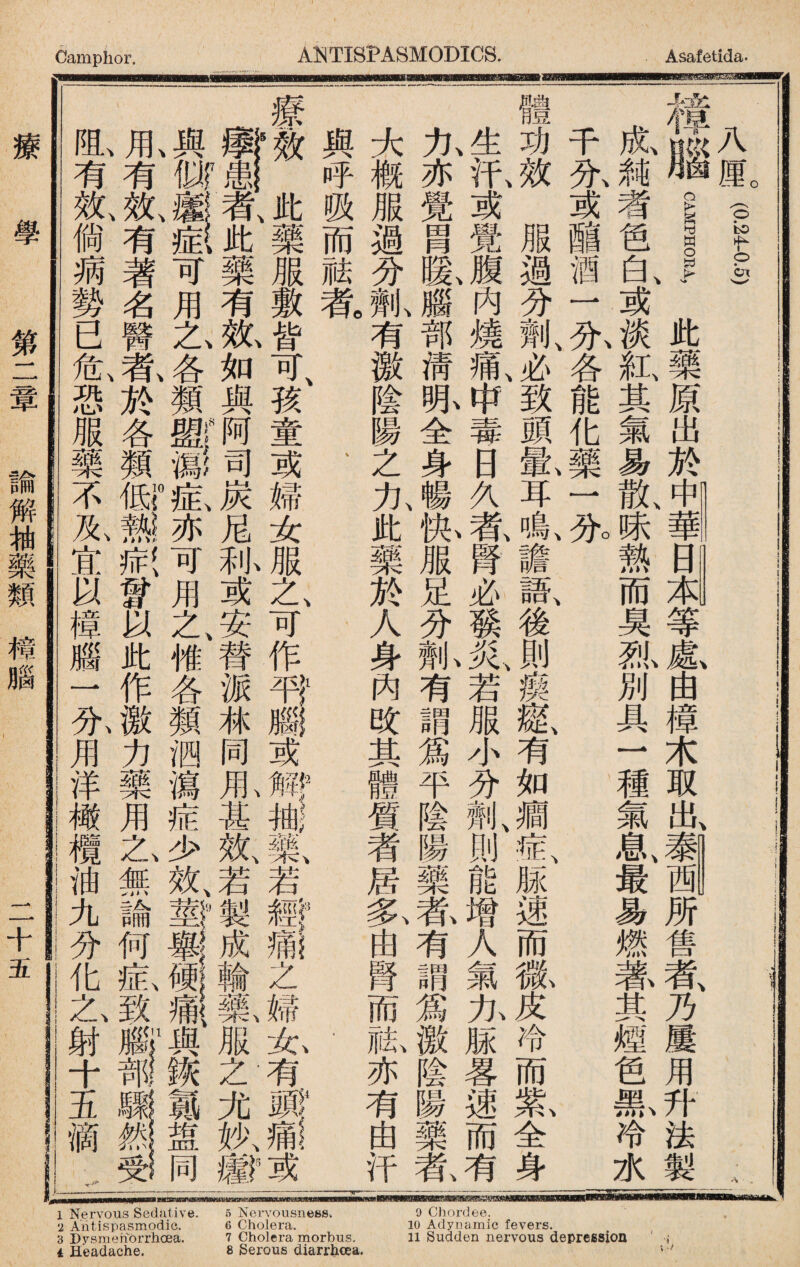 Camphor. ANTISPASMODICS. Asafetida.
八厘。(0.24-0.5)
樟腦 CAMPHORA, 此藥原出於中華日本等處、由樟木取出、泰西所售者、乃屢用升法製
成、純者色白、或淡紅、其氣易散、味熱而臭烈、別具一種氣息、最易燃著、其煙色黑、冷水
千分、或醕酒一分、各能化藥一分。
體功效 服過分劑、必致頭暈、耳鳴、譫語、後則瘈瘲、有如癇症、脉速而微、皮冷而紫、全身
生汗、或覺腹內燒痛、中毒日久者、腎必發炎、若服小分劑、則能增人氣力、脉畧速而有
力、亦覺胃暖、腦部清明、全身暢快、服足分劑、有謂爲平陰陽藥者、有謂爲激陰陽藥者、
大概服過分劑、有激陰陽之力、此藥於人身內改其體質者居多、由腎而祛、亦有由汗
與呼吸而祛者。
療效 此藥服敷皆可、孩童或婦女服之、可作平腦1或解抽2藥、若經痛3之婦女、有頭痛4或
患5者、此藥有效、如與阿司炭尼利、或安替派林同用、甚效、若製成輪藥、服之尤妙、癨6
與似癨症7可用之、各類盟瀉8症、亦可用之、惟各類泗瀉症少效、莖舉硬痛9與鉄氳塩同
用、有效、有著名醫者、於各類低熱症10、曾以此作激力藥用之、無論何症、致腦部驟然受11
阻、有效、倘病勢已危、恐服藥不及、宜以樟腦一分、用洋橄欖油九分化之、射十五滴
療學 第二章 論解抽藥類 樟腦 二十五
1 Nervous Sedative.
2 Antispasmodic.
3 Dysmenorrhœa.
4 Headache.
5 Nervousness.
6 Cholera.
7 Cholera morbus.
8 Serous diarrhœa.
9 Chordee.
10 Adynamic fevers.
11 Sudden nervous depression